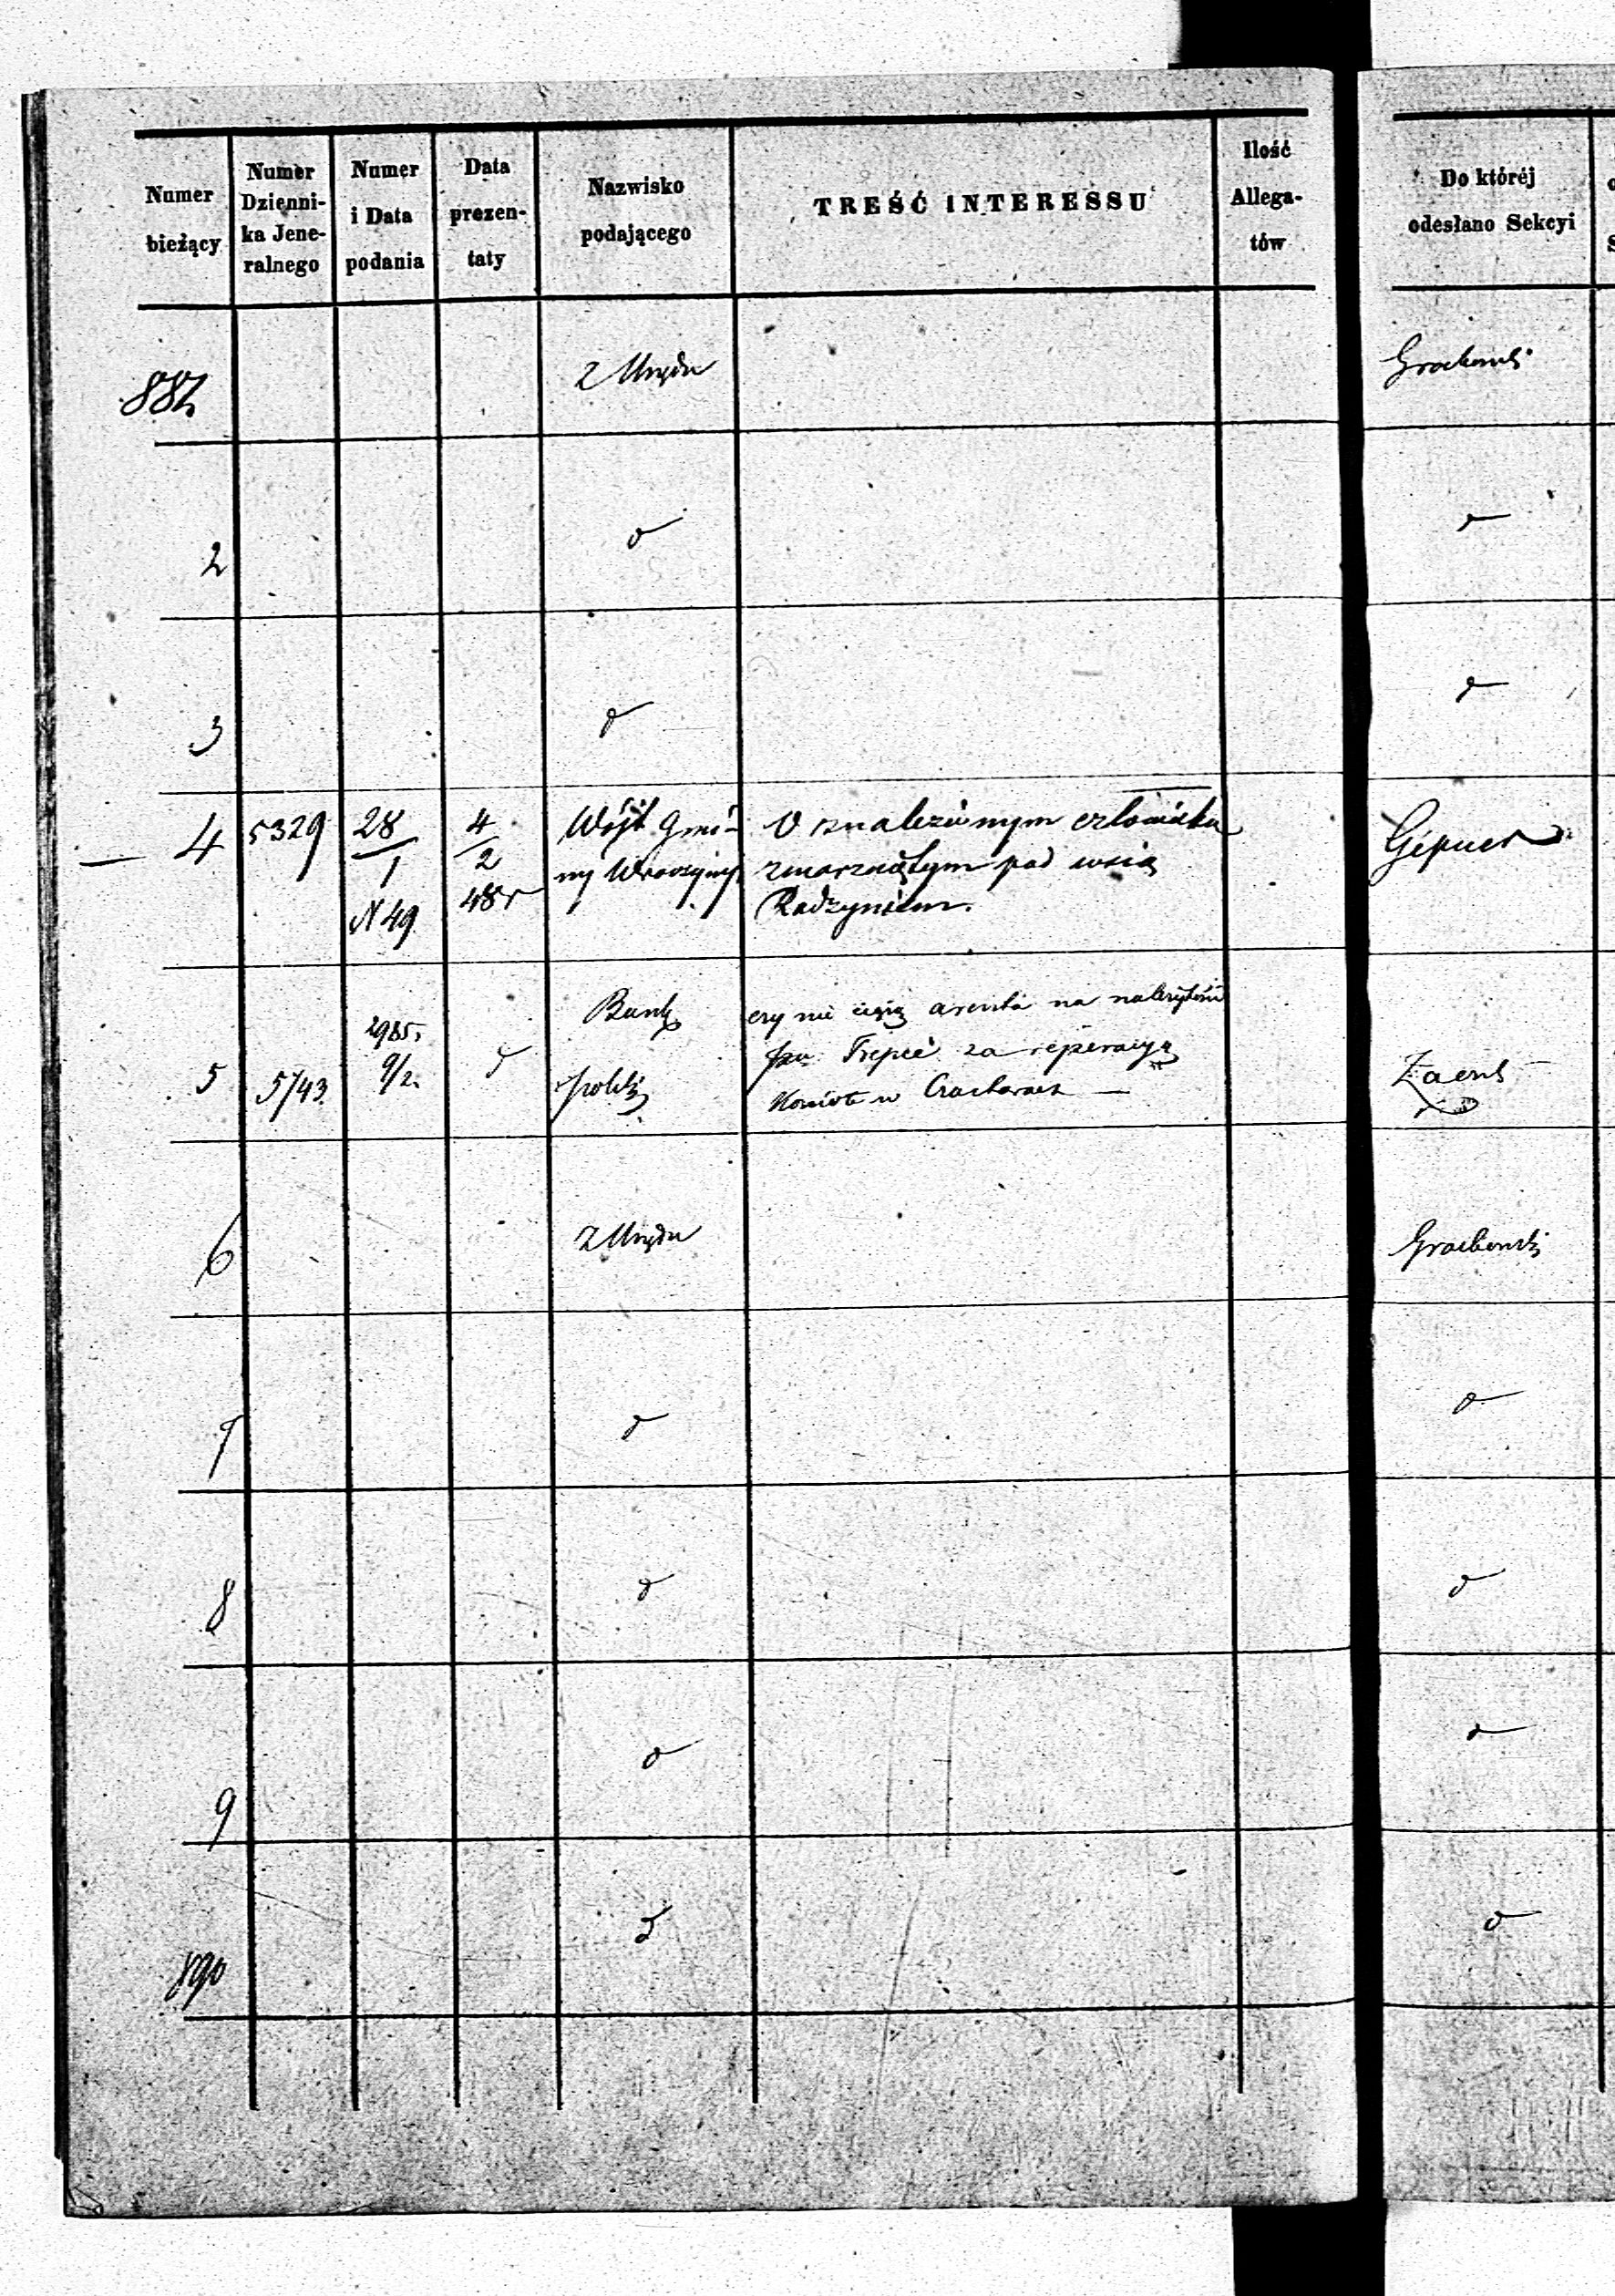 Numer bieżący
Numer Dziennika Jeneralnego
Numer i Data podania
Data prezentaty
Nazwisko podającego
TREŚĆ INTERESSU
Ilość Allegatów
Do któréj odesłano Sekcyi
881 Z Urzędu Grochowski
2 d d
3 d d
4 5329 28/1 N 49 4/2 48r
Wójt Gmi-
ny
O znalezionym człowieku
zmarzniętym pod wsią
Radzyniem.
Gepner
5 5743 2985 9/2 d
Bank
polski
czy nie ciążą areszta na należytości
za reperacyą
6 Z Urzędu Grochowski
7 d d
8 d d
9 d d
890 d d